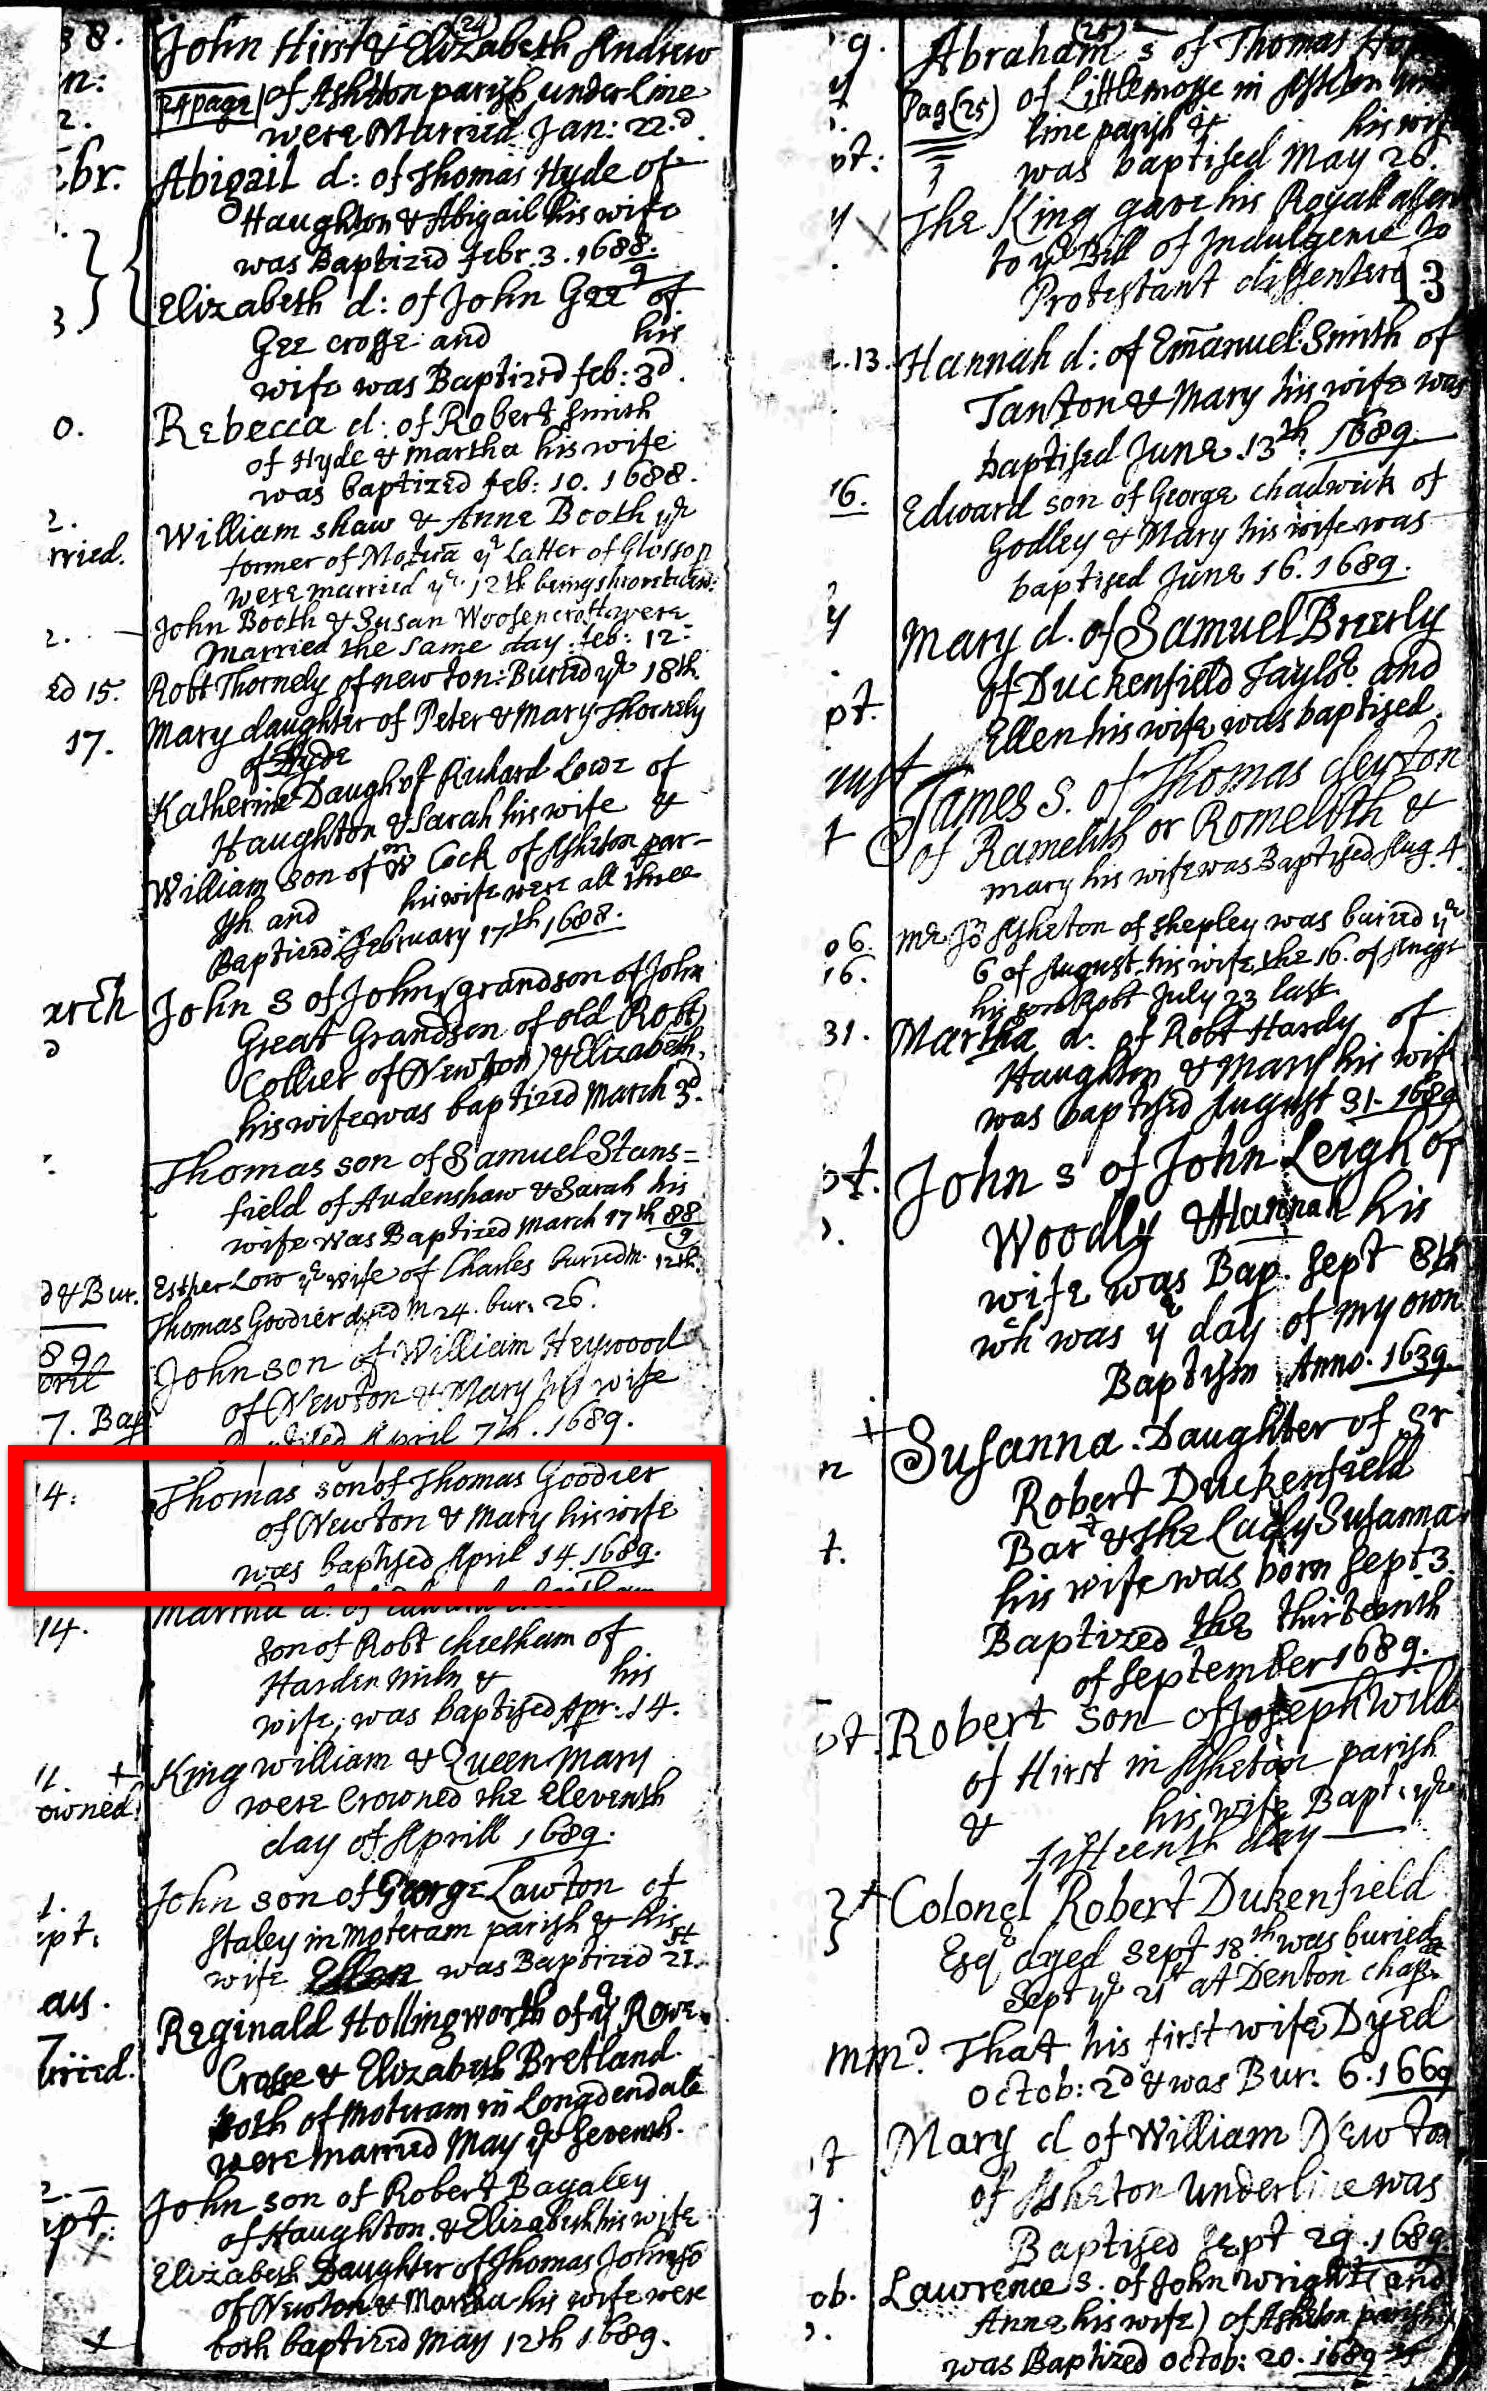 38.
n:
2.
(24)
John Hirst & Elizabeth Andrew
24 page of Ashton parish underline
were Married Jan: 22.d
ebr. Abigail d: of Thomas Hyde of
Haughton & Abigail his wife
was Baptized febr. 3. 1688/9
3. Elizabeth d: of John Gee of
Gee crosse and his
wife was Baptized feb: 3d.
0. Rebecca d: of Robert Smith
of Hyde & Martha his wife
was baptized feb: 10. 1688.
2. William Shaw & Anne Booth ye
rried. former of Motrā ye Latter of Glossop
were married ye 12th being
2. John Booth & Susan were
Married the same day: feb: 12:
ed 15. Robt Thornely of newton: Buried ye 18th.
17. Mary daughter of Peter & Mary Thornely
of Hyde
Katherine Daugh of Richard Lowe of
Haughton & Sarah his wife &
William son of Wm Cock of Asheton par-
ish and his wife were all three
Baptized February 17th 1688.
arch John S of John, grandson of John
Great Grandson of old Robt
Collier of Newton) & Elizabeth
his wife was baptized March 3d.
Thomas son of Samuel Stans=
field of Audenshaw & Sarah his
wife was Baptized March 17th 88/9
d & Bur. Esther Low ye wife of Charles buried M. 12th.
Thomas Goodier dyed M 24. bur. 26.
89
pril John son of William Heywood
of Newton & Mary his wife
7. Bap April 7th. 1689.
14: Thomas son of Thomas Goodier
of Newton & Mary his wife
was baptised April 14. 1689.
Martha d: of Edward
14. son of Robt cheetham of
Harden miln & his
wife, was baptised Apr: 14.
11. + King William & Queen Mary
owned were Crowned the eleventh
day of Aprill 1689.
John son of George Lawton of
ept: Staley in Moteram parish & his
wife Ellen was Baptized 21st.
Reginald Hollingworth of ye Rowe
Crosse & Elizabeth Bretland
both of Moteram in Longdendale
uried. were married May ye seventh.
2. John son of Robert Bagaley
pt: of Haughton & Elizabeth his wife
Elizabeth Daughter of Thomas Johnsō
of Newton & Martha his wife were
both baptized May 12th 1689.
(25)
9. Abraham s of Thomas
Pag (25) of Littlemosse in Asheton
line parish & his wife
pt: was baptised May 26.
y The King gave his Royall
to ye Bill of Indulgence to
Protestant dissenters 13
13. Hannah d: of Emānuel Smith of
Tanton & Mary his wife was
baptised June 13th. 1689.
16. Edward son of George Chadwick of
Godley & Mary his wife was
baptised June 16. 1689.
y Mary d. of Samuel Brierly
of Duckenfield and
pt. Ellen his wife was baptised
ust James S. of Thomas Cleyton
of Ramelith or Romelith &
Mary his wife was Baptised Aug. 4.
06. Mr Jo Asheton of Shepley was buried ye
16. 6 of August, his wife the 16. of
his son Robt July 23 last.
31. Martha d. of Robt Hardy of
Haughton & Mary his wife
was baptised August 31. 1689
pt. John s of John Leigh of
Woodly & Hannah his
wife was Bap. Sept 8th
wch was ye day of my own
Baptism Anno. 1639.
Susanna. Daughter of Sr
Robert Duckenfield
Bart & the Lady Susanna
his wife was born Sept 3.
Baptized the thirteenth
of September 1689.
pt. Robert son of Joseph Wild
of Hirst in Asheton parish
& his wife Bapt. ye
fifteenth day
+ Colonel Robert Dukenfield
Esqe dyed Sept 18th was buried
Sept ye 21st at Denton chap.
mmd. That his first wife Dyed
Octob: 2d & was Bur: 6. 1669
Mary d of William Newton
of Asheton underline was
Baptised Sept 29. 1689.
ob. Lawrence s. of John Wright (and
Anne his wife) of Ashton parish
was Baptized Octob: 20. 1689